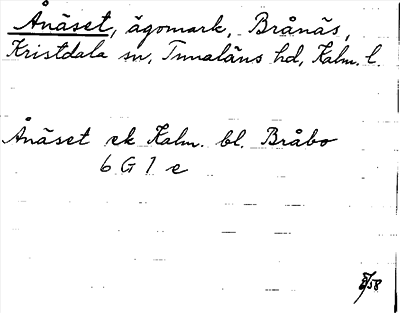 Ånäset, ägomark, Brånäs,
Kristdala sn, Tunaläns hd, Kalm. l.
Ånäset ek Kalm. bl. Bråbo
6 G 1 e